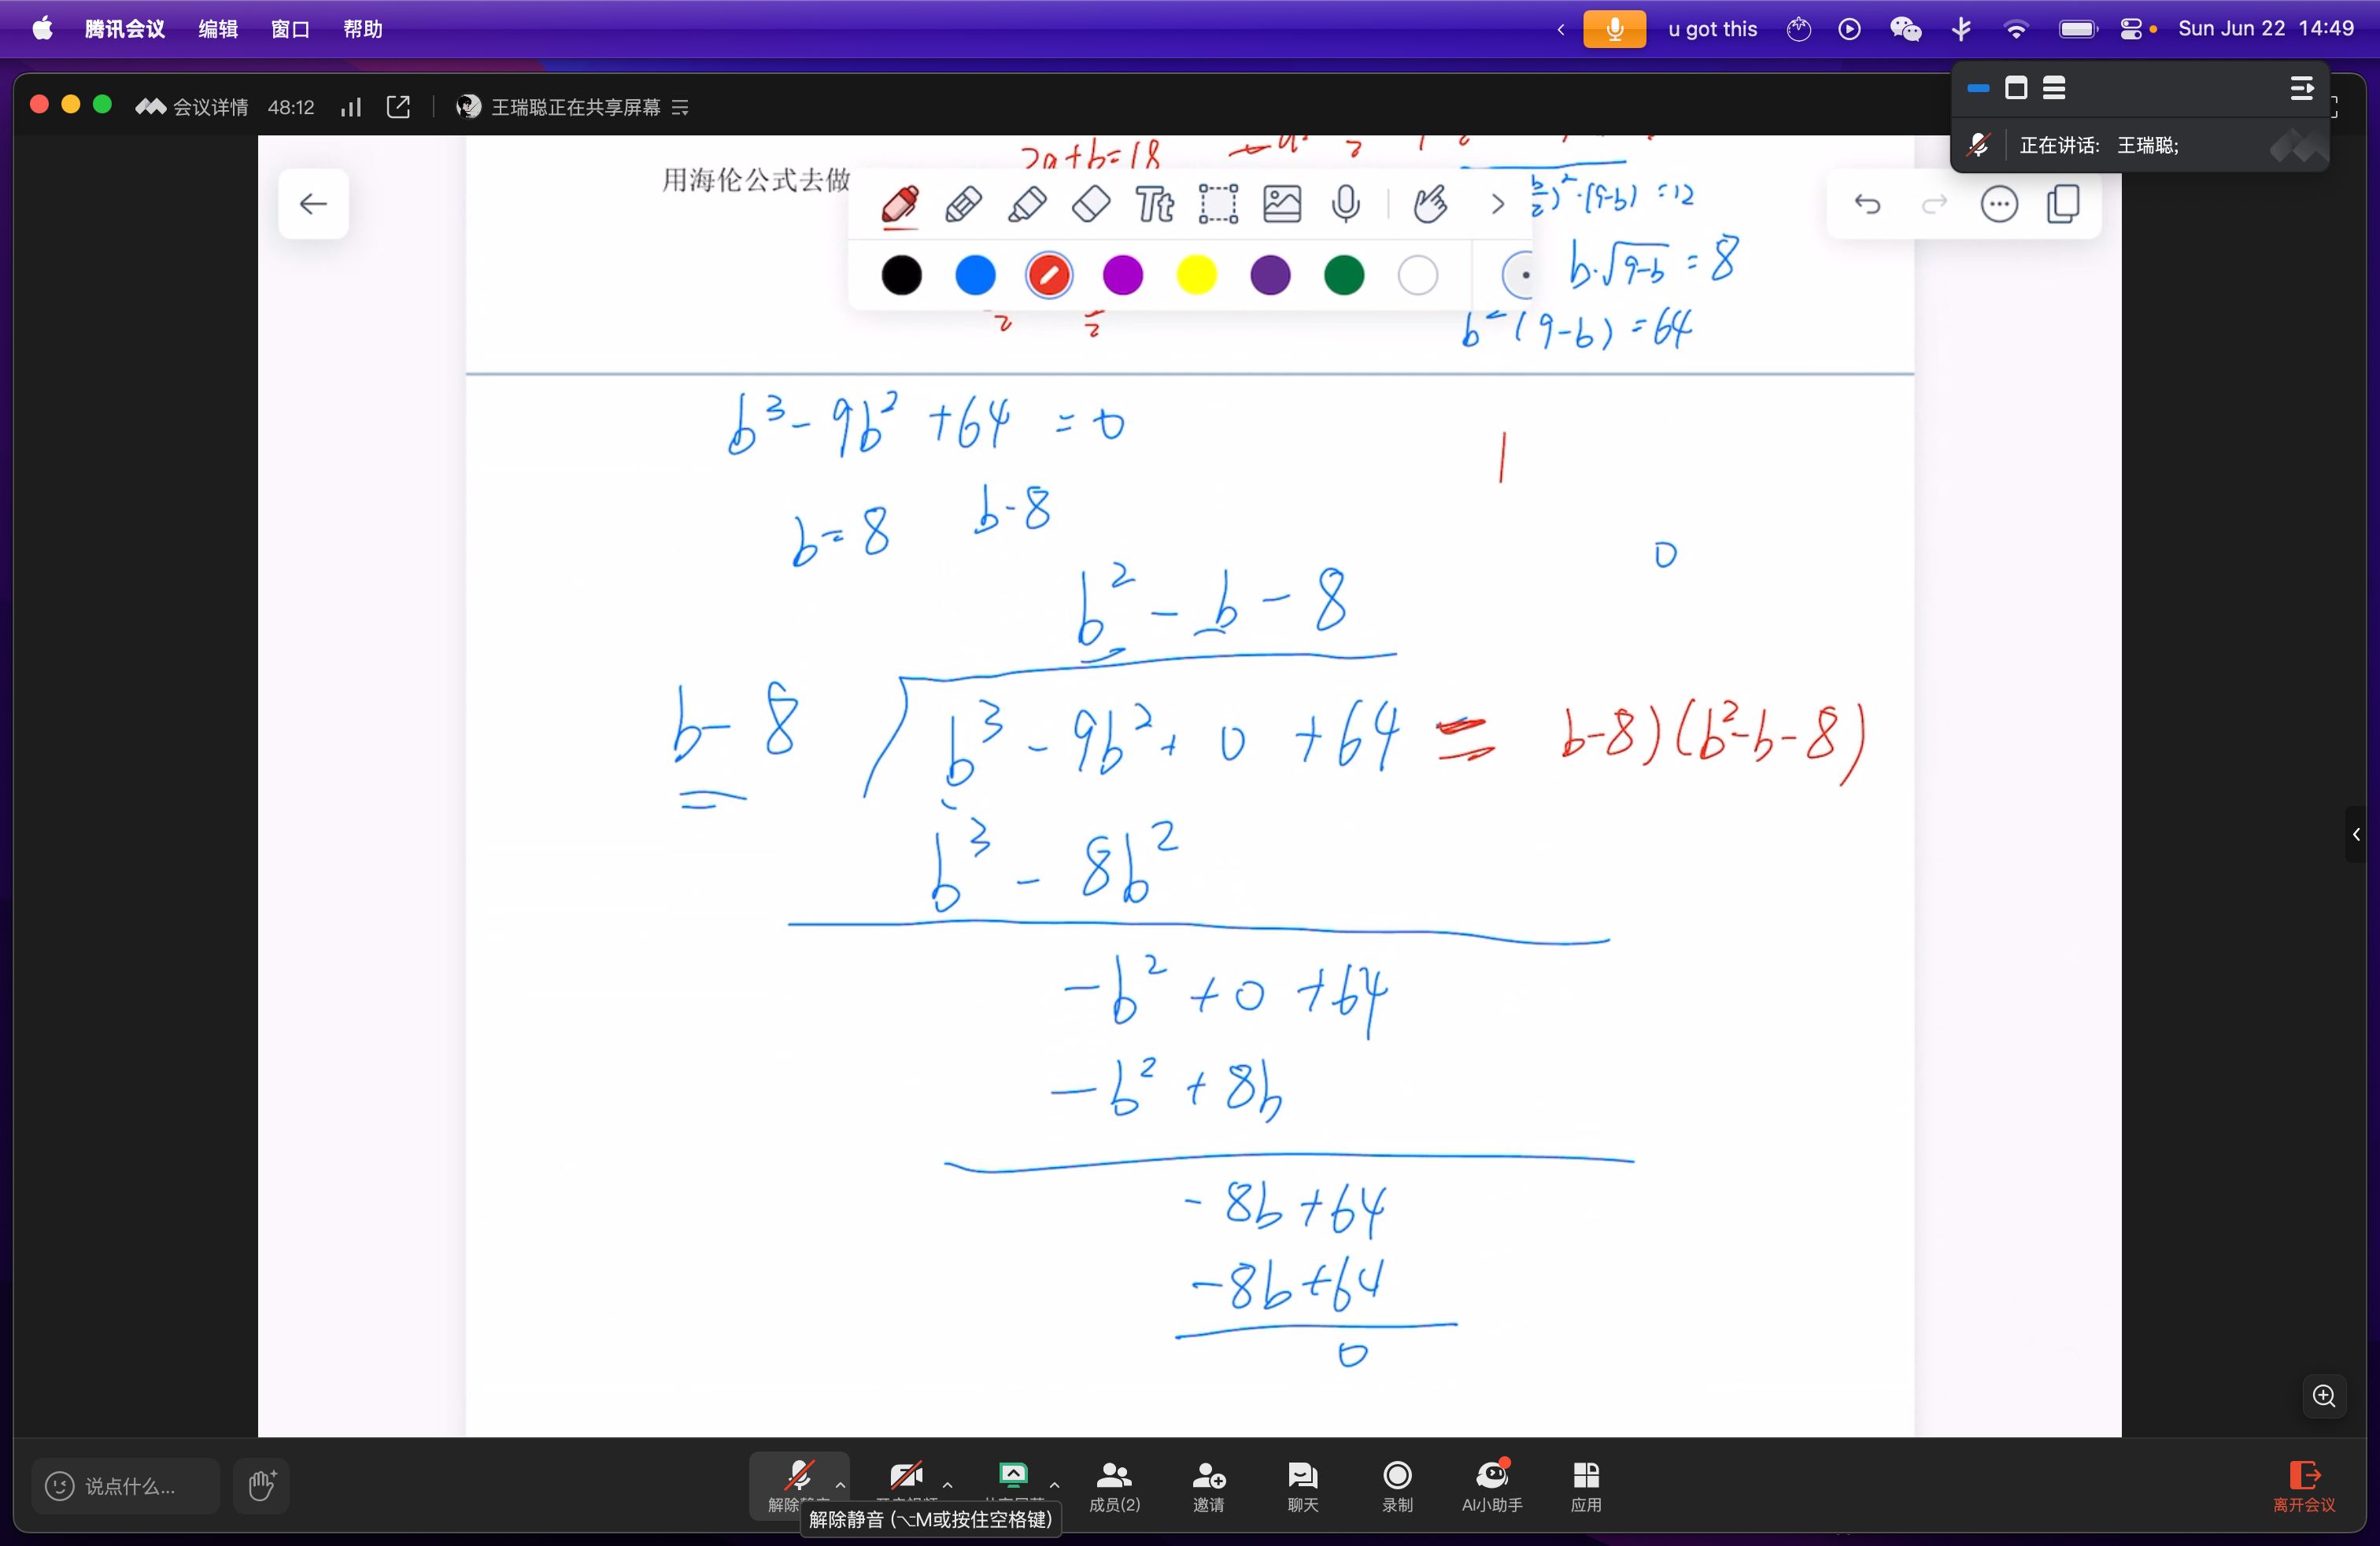 腾讯会议 编辑 窗口 帮助 u got this Sun Jun 22 14:49
会议详情 48:12 王瑞聪正在共享屏幕
正在讲话: 王瑞聪;
用海伦公式去做
2a+b=18
Tt
(b/2)²·(9-b) =12
b·√9-b = 8
b²(9-b) = 64
b³ - 9b² + 64 = 0
b = 8 b-8
0
b² - b - 8
b - 8 b³ - 9b² + 0 + 64 = b-8)(b²-b-8)
b³ - 8b²
-b² + 0 + 64
-b² + 8b
-8b + 64
-8b + 64
0
说点什么...
成员(2) 邀请 聊天 录制 AI小助手 应用 离开会议
解除静音 (⌥M或按住空格键)